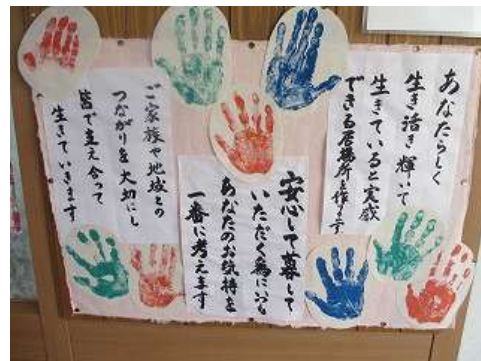 あなたらしく
生き活き輝いて
生きていると実感
できる居場所を作ります
安心して暮して
いただく為にいつも
あなたのお気持を
一番に考えます
ご家族や地域との
つながりを大切にし
皆で支え合って
生きていきます